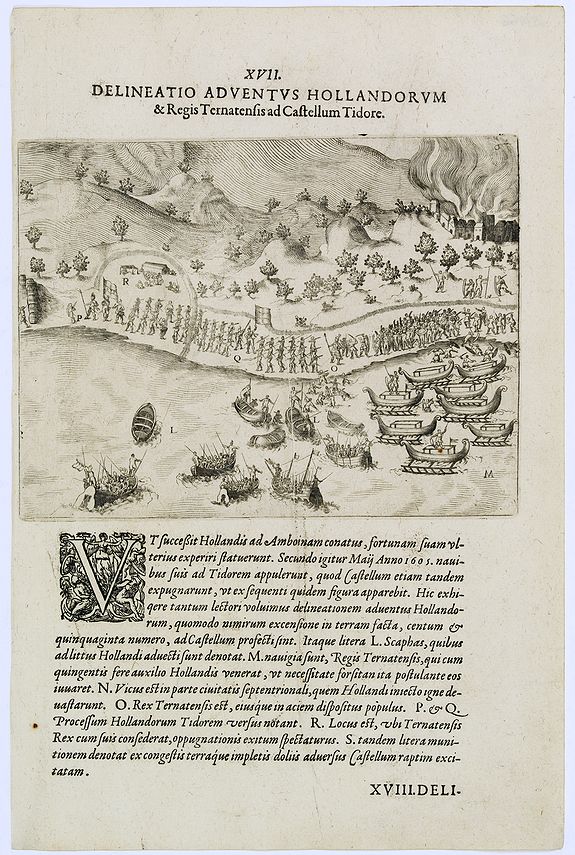 XVII.
DELINEATIO ADVENTVS HOLLANDORVM
& Regis Ternatensis ad Castellum Tidore.
R
P
Q
O
L
M
VT successit Hollandis ad Amboinam conatus, fortunam suam vl-
terius experiri statuerunt. Secundo igitur Maij Anno 1605. naui-
bus suis ad Tidorem appulerunt, quod Castellum etiam tandem
expugnarunt, vt ex sequenti quidem figura apparebit. Hic exhi-
gere tantum lectori voluimus delineationem aduentus Hollando-
rum, quomodo nimirum excensione in terram facta, centum &
quinquaginta numero, ad Castellum profecti sint. Itaque litera L. Scaphas, quibus
ad littus Hollandi aduecti sunt denotat. M. nauigia sunt, Regis Ternatensis, qui cum
quingentis fere auxilio Hollandis venerat, vt necessitate forsitan ita postulante eos
iuuaret. N. Vicus est in parte ciuitatis septentrionali, quem Hollandi iniecto igne de-
uastarunt. O. Rex Ternatensis est, eiusque in aciem dispositus populus. P. & Q.
Processum Hollandorum Tidorem versus nòtant. R. Locus est, vbi Ternatensis
Rex cum suis consederat, oppugnationis exitum spectaturus. S. tandem litera muni-
tionem denotat ex congestis terraque impletis doliis aduersus Castellum raptim exci-
tatam.
XVIII. DELI-